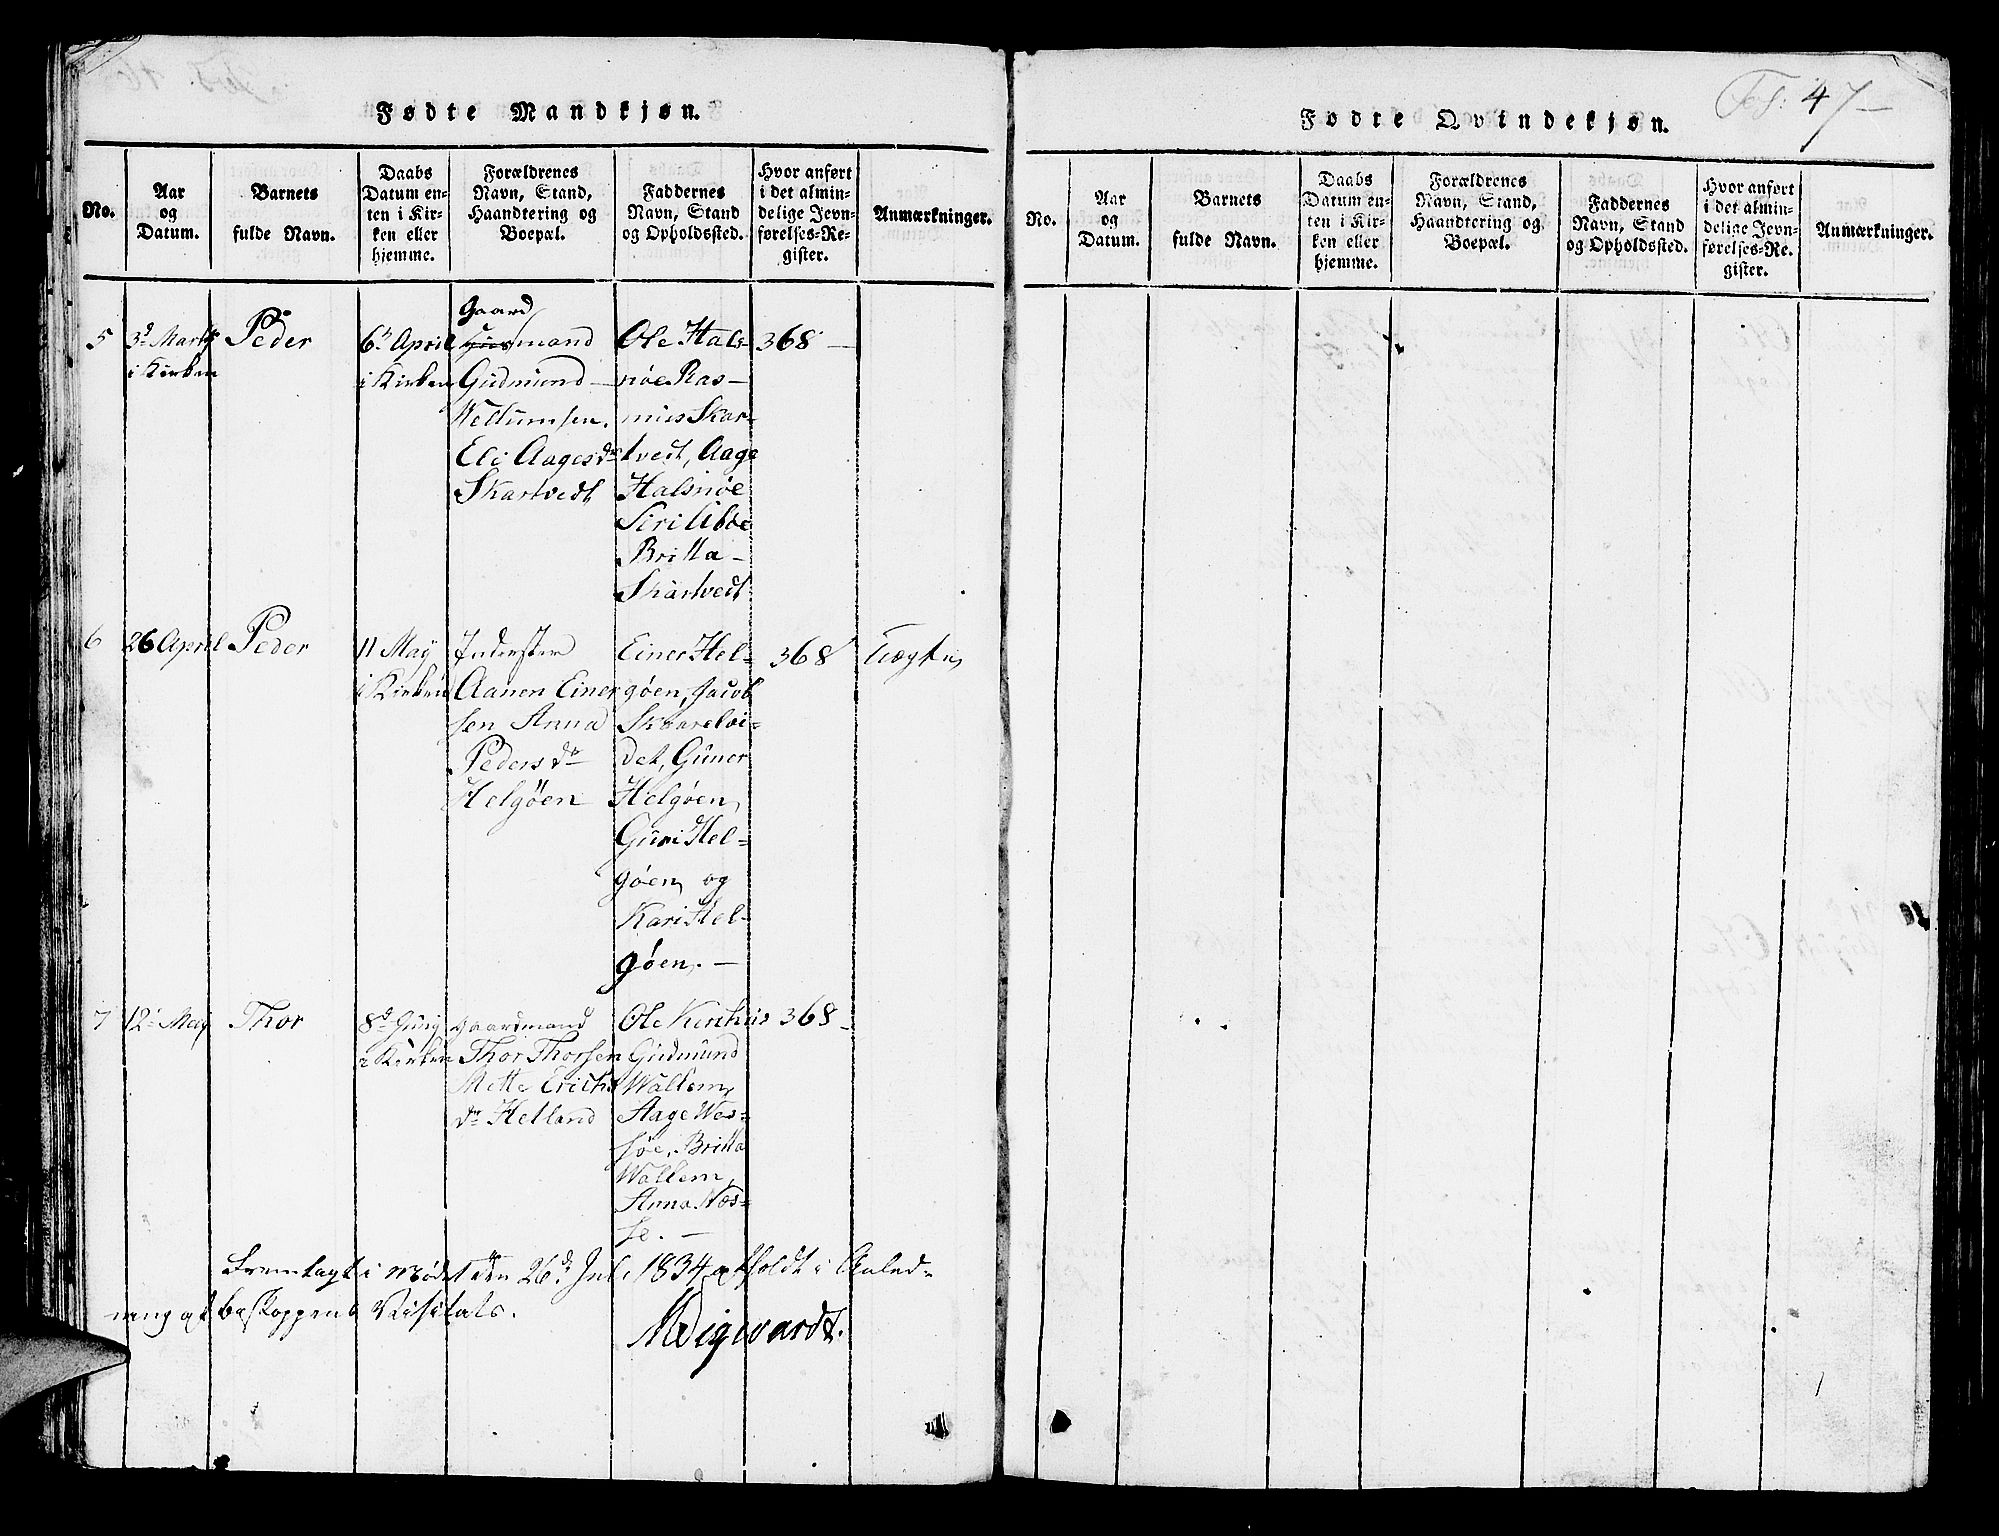 Fødte Mandkjøn.
No.
Aar
og
Datum.
Barnets
fulde Navn.
Daabs
Datum en-
ten i Kir-
ken eller
hjemme.
Forældrenes
Navn, Stand,
Haandtering og
Boepæl.
Faddernes
Navn, Stand
og Opholdssted.
Hvor anført
i det almin-
delige Jevn-
førelses-Re-
gister.
Anmærkninger.
5
3d Marts
i Kirken
Peder
6d April
i Kirken
Gaard
Huusmand
Gudmund
Wellumsen.
Eli Aagesdr
Skartvedt
Ole Hals-
nöe Ras-
mus Skar-
tvedt, Aage
Halsnöe
Siri Liböe
Britta
Skartvedt
368 —
6
26 April
Peder
11 May
i Kirken
Inderster
Aanen Einer
sen Anna
Peders dr
Helgöen
Einer Hel-
göen, Jacob
Skaarelvi-
det, Guner
Helgöen,
Guri Hel-
göen og
Kari Hel-
göen. —
368
7
12 May
Thor
8d Juny
i Kirken
gaardmand
Thor Thorsen
Mette Erichs
dr Helland
Ole Kirkhus
Gudmund
Wallem,
Aage Wes-
söe, Britta
Wallem,
Anna Næs-
se. —
368 -
Fremlagt i Mödet den 26d Juli 1834 afholdt i Anled-
ning af biskoppens Visitats.
Fol: 47 —
Fødte Qvindekjøn.
No.
Aar
og
Datum.
Barnets
fulde Navn.
Daabs
Datum en-
ten i Kir-
ken eller
hjemme.
Forældrenes
Navn, Stand,
Haandtering og
Boepæl.
Faddernes
Navn, Stand
og Opholdssted.
Hvor anført
i det almin-
delige Jevn-
førelses-Re-
gister.
Anmærkninger.